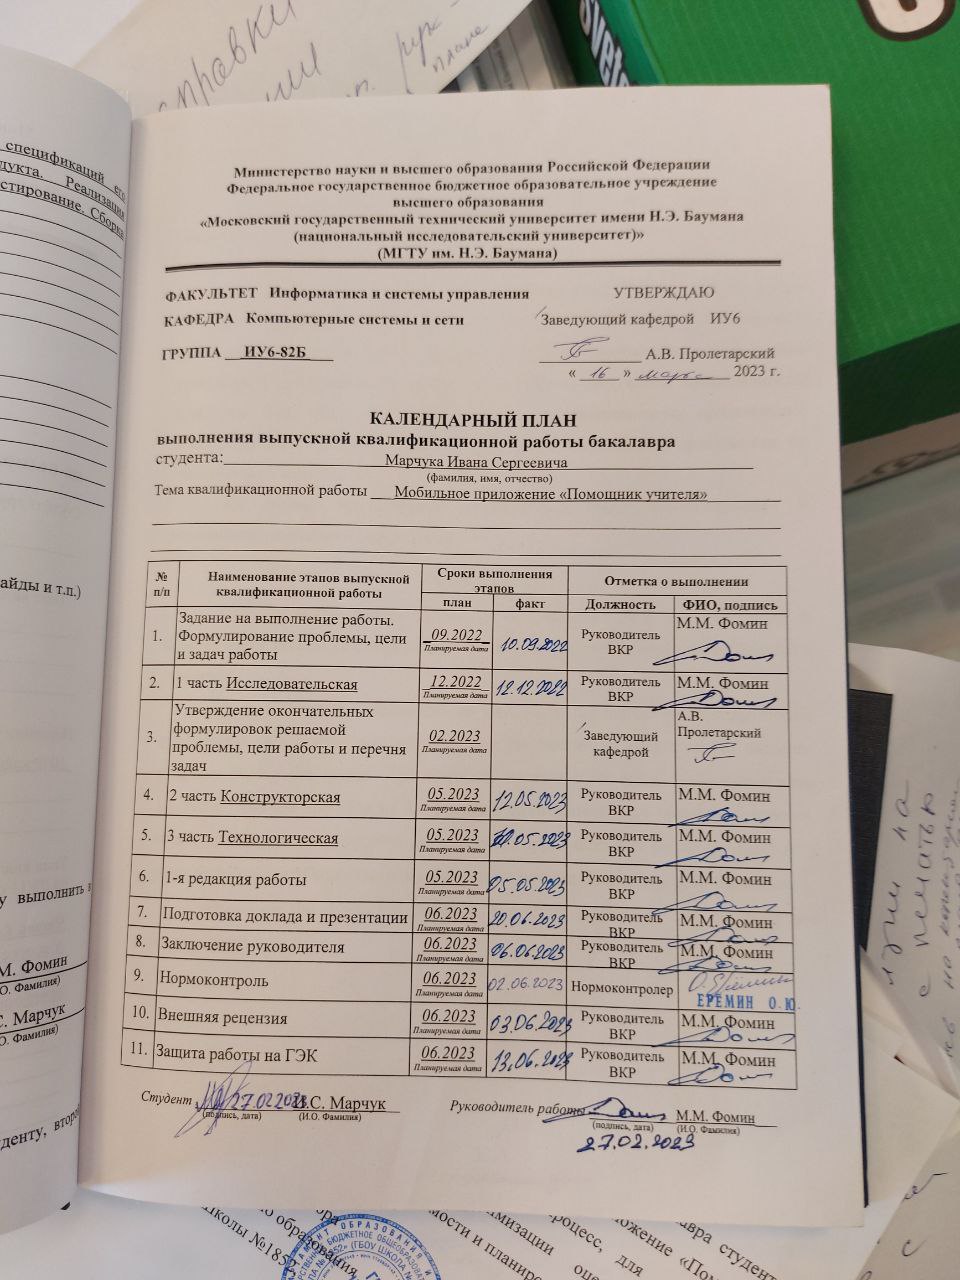 справки
рук-
плане
Svetо
спецификаций его
дукта. Реализация
стирование. Сборка
айды и т.п.)
у выполнить в
М. Фомин
О. Фамилия)
С. Марчук
О. Фамилия)
денту, второй
Министерство науки и высшего образования Российской Федерации
Федеральное государственное бюджетное образовательное учреждение
высшего образования
«Московский государственный технический университет имени Н.Э. Баумана
(национальный исследовательский университет)»
(МГТУ им. Н.Э. Баумана)
ФАКУЛЬТЕТ Информатика и системы управления УТВЕРЖДАЮ
КАФЕДРА Компьютерные системы и сети Заведующий кафедрой ИУ6
ГРУППА ИУ6-82Б А.В. Пролетарский
« 16 » марта 2023 г.
КАЛЕНДАРНЫЙ ПЛАН
выполнения выпускной квалификационной работы бакалавра
студента: Марчука Ивана Сергеевича
(фамилия, имя, отчество)
Тема квалификационной работы Мобильное приложение «Помощник учителя»
№ п/п Наименование этапов выпускной квалификационной работы Сроки выполнения этапов Отметка о выполнении
план факт Должность ФИО, подпись
1. Задание на выполнение работы. Формулирование проблемы, цели и задач работы 09.2022 Планируемая дата 10.09.2022 Руководитель ВКР М.М. Фомин
2. 1 часть Исследовательская 12.2022 Планируемая дата 12.12.2022 Руководитель ВКР М.М. Фомин
3. Утверждение окончательных формулировок решаемой проблемы, цели работы и перечня задач 02.2023 Планируемая дата Заведующий кафедрой А.В. Пролетарский
4. 2 часть Конструкторская 05.2023 Планируемая дата 12.05.2023 Руководитель ВКР М.М. Фомин
5. 3 часть Технологическая 05.2023 Планируемая дата .05.2023 Руководитель ВКР М.М. Фомин
6. 1-я редакция работы 05.2023 Планируемая дата 25.05.2023 Руководитель ВКР М.М. Фомин
7. Подготовка доклада и презентации 06.2023 Планируемая дата 20.06.2023 Руководитель ВКР М.М. Фомин
8. Заключение руководителя 06.2023 Планируемая дата 06.06.2023 Руководитель ВКР М.М. Фомин
9. Нормоконтроль 06.2023 Планируемая дата 02.06.2023 Нормоконтролер ЕРЕМИН О.Ю.
10. Внешняя рецензия 06.2023 Планируемая дата 03.06.2023 Руководитель ВКР М.М. Фомин
11. Защита работы на ГЭК 06.2023 Планируемая дата 13.06.2023 Руководитель ВКР М.М. Фомин
Студент 27.02.2023 И.С. Марчук Руководитель работы М.М. Фомин
(подпись, дата) (И.О. Фамилия) (подпись, дата) (И.О. Фамилия)
27.02.2023
на
с печатью
образования
школы №1852
мости и планиро
процесс, для
ложение «Пом
лавра студент